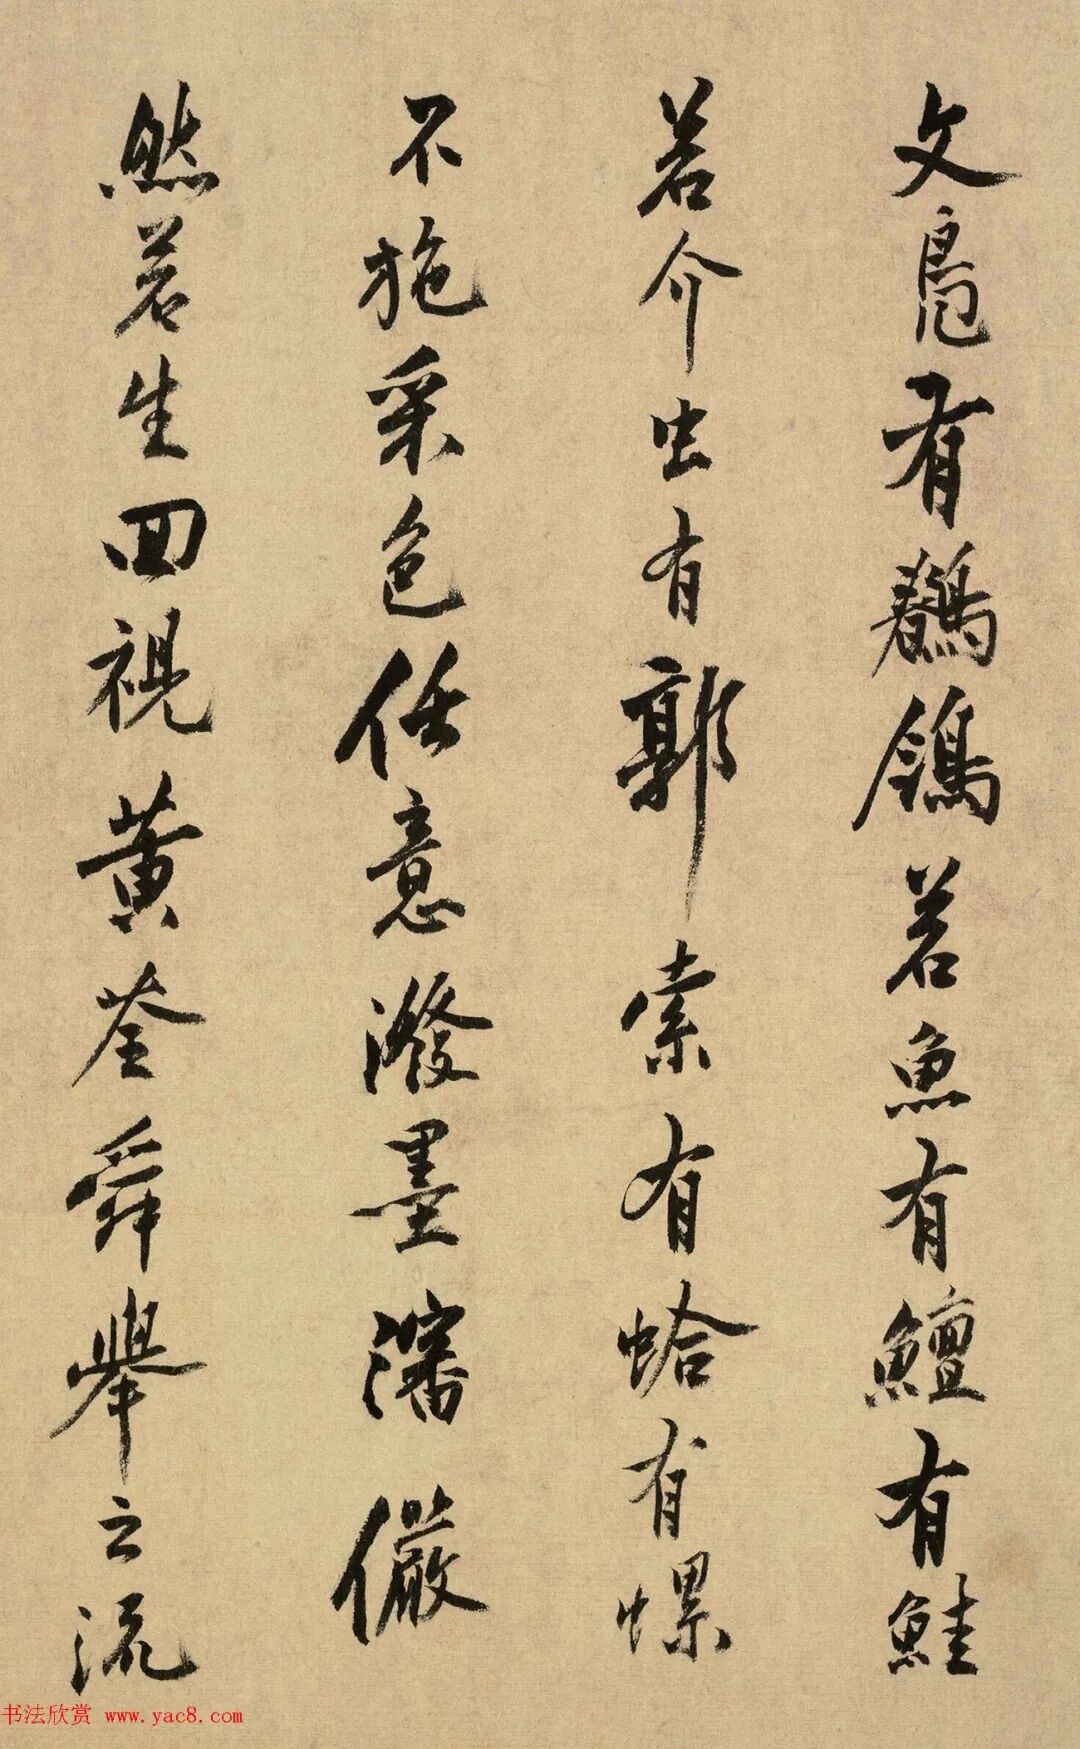 文鳧有鶺鴒若魚有鱣有鮭
若介虫有郭索有蛤有螺
不施采色任意潑墨瀋儼
然若生回視黃荃舜舉之流
书法欣赏 www.yac8.com